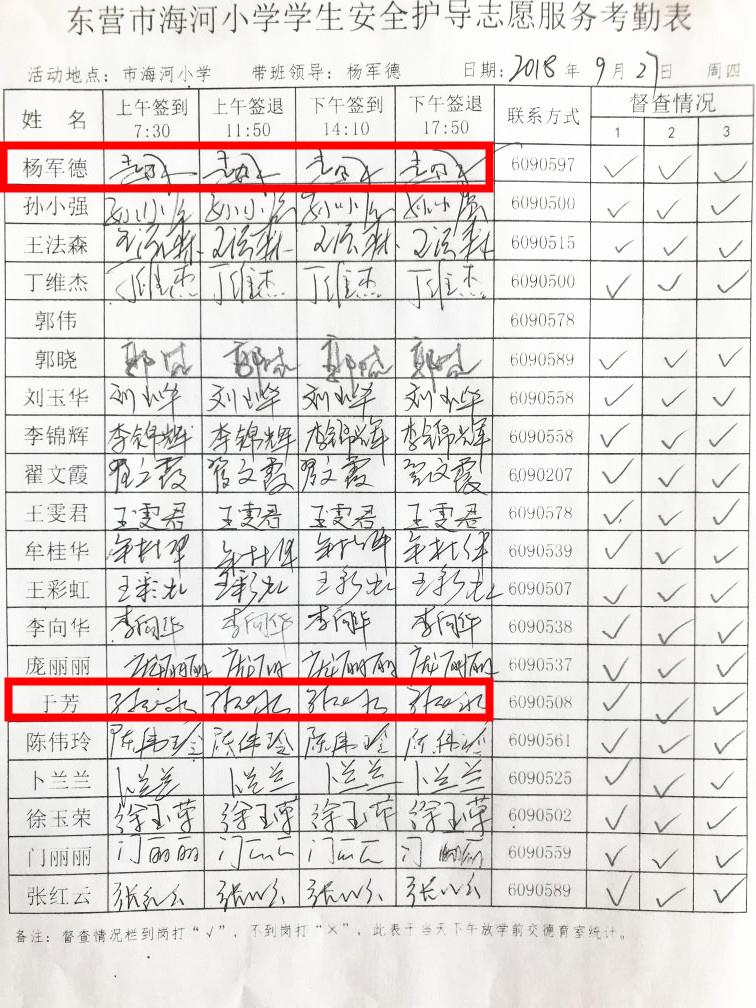 东营市海河小学学生安全护导志愿服务考勤表
活动地点：市海河小学 带班领导：杨军德 日期：2018年9月27日 周四
姓名 上午签到 7:30 上午签退 11:50 下午签到 14:10 下午签退 17:50 联系方式 督查情况 1 2 3
杨军德 6090597 ✓ ✓ ✓
孙小强 孙小强 孙小强 孙小强 孙小强 6090500 ✓ ✓ ✓
王法森 王法森 王法森 王法森 王法森 6090515 ✓ ✓ ✓
丁维杰 丁维杰 丁维杰 丁维杰 丁维杰 6090500 ✓ ✓ ✓
郭伟 6090578
郭晓 郭晓 郭晓 郭晓 郭晓 6090589 ✓ ✓ ✓
刘玉华 刘玉华 刘玉华 刘玉华 刘玉华 6090558 ✓ ✓ ✓
李锦辉 李锦辉 李锦辉 李锦辉 李锦辉 6090558 ✓ ✓ ✓
翟文霞 翟文霞 翟文霞 翟文霞 翟文霞 6090207 ✓ ✓ ✓
王雯君 王雯君 王雯君 王雯君 王雯君 6090578 ✓ ✓ ✓
牟桂华 牟桂华 牟桂华 牟桂华 牟桂华 6090539 ✓ ✓ ✓
王彩虹 王彩虹 王彩虹 王彩虹 王彩虹 6090507 ✓ ✓ ✓
李向华 李向华 李向华 李向华 李向华 6090538 ✓ ✓ ✓
庞丽丽 庞丽丽 庞丽丽 庞丽丽 庞丽丽 6090537 ✓ ✓ ✓
于芳 6090508 ✓ ✓ ✓
陈伟玲 陈伟玲 陈伟玲 陈伟玲 陈伟玲 6090561 ✓ ✓ ✓
卜兰兰 卜兰兰 卜兰兰 卜兰兰 卜兰兰 6090525 ✓ ✓ ✓
徐玉荣 徐玉荣 徐玉荣 徐玉荣 徐玉荣 6090502 ✓ ✓ ✓
门丽丽 门丽丽 门丽丽 门丽丽 门丽丽 6090559 ✓ ✓ ✓
张红云 张红云 张红云 张红云 张红云 6090589 ✓ ✓ ✓
备注：督查情况栏到岗打“√”，不到岗打“×”，此表于当天下午放学前交德育室统计。